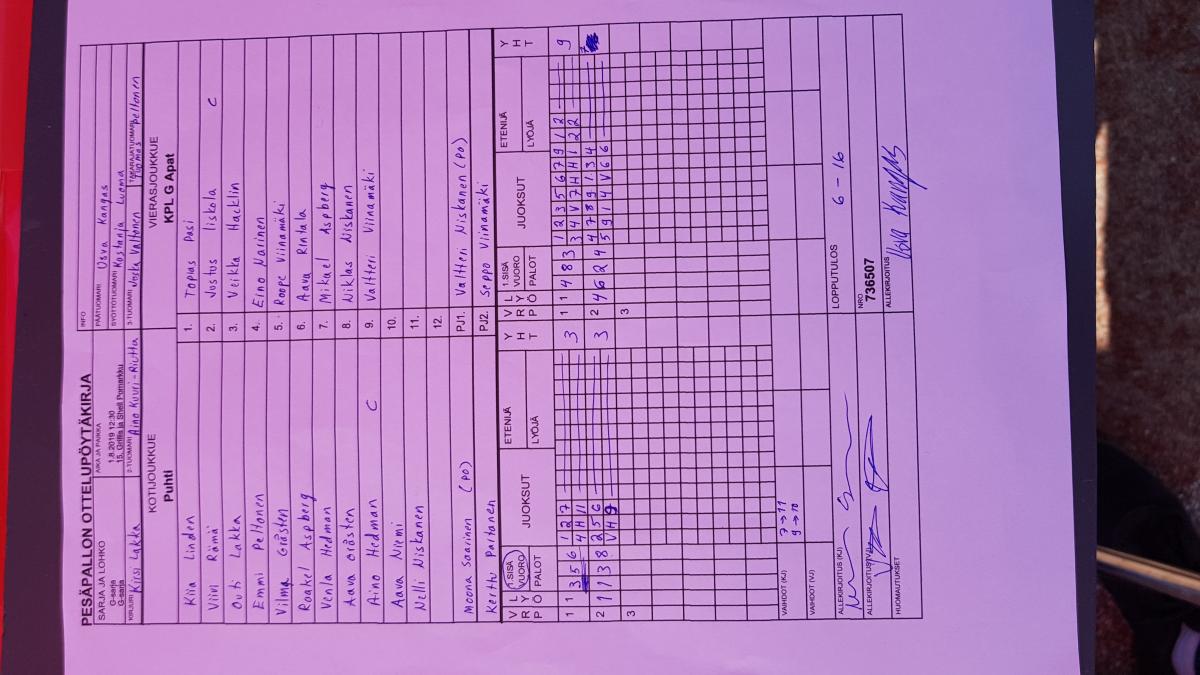 PESÄPALLON OTTELUPÖYTÄKIRJA
SARJA JA LOHKO
G-sarja
G-sarja
AIKA JA PAIKKA
1.8.2019 12:30
15. Grilla ja Shell Pomarkku
INFO
PÄÄTUOMARI Usva Kangas
SYÖTTÖTUOMARI Kastanja Luoma
KIRJURI Kirsi Lakka
2-TUOMARI Aino Kuuri-Riutta
3-TUOMARI Joska Valtonen
TAKARAJATUOMARI Tuomas Peltonen
KOTIJOUKKUE
Puhti
VIERASJOUKKUE
KPL G Apat
Kiia Linden 1. Topias Pasi
Viivi Rämä 2. Justus Iiskola C
Outi Lakka 3. Veikka Hacklin
Emmi Peltonen 4. Eino Narinen
Vilma Grästen 5. Roope Viinamäki
Raakel Aspberg 6. Aava Rintala
Venla Hedman 7. Mikael Aspberg
Aava Grästen 8. Niklas Niskanen
Aino Hedman C 9. Valtteri Viinamäki
Aava Niemi 10.
Nelli Niskanen 11.
12.
Moona Saarinen (PO) PJ1. Valtteri Niskanen (PO)
Kerttu Partanen PJ2. Seppo Viinamäki
V R L Y P Ö 1.SISÄ VUORO PALOT JUOKSUT ETENIJÄ LYÖJÄ Y H T V R L Y P Ö 1.SISÄ VUORO PALOT JUOKSUT ETENIJÄ LYÖJÄ Y H T
1 1 3 5 6 1 2 7 3 1 1 4 8 3 1 2 3 5 6 7 9 1 2 9
4 H 11 3 4 V 7 H H 1 2 2
2 1 1 3 8 2 5 6 3 2 4 6 2 4 4 7 8 9 1 3 4 7
V H 9 5 9 1 4 V 6 6
3 3
VAIHDOT (KJ) 7→11
9→10
VAIHDOT (VJ)
LOPPUTULOS 6 - 16
ALLEKIRJOITUS (KJ)
ALLEKIRJOITUS (VJ)
NRO
736507
ALLEKIRJOITUS Usva Kangas
HUOMAUTUKSET